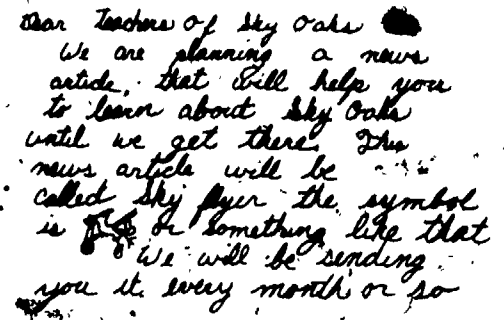 Dear Teachers of Sky Oaks
We are planning a news
article, that will help you
to learn about Sky Oaks
until we get there. This
news article will be
called Sky flyer the symbol
is or something like that
We will be sending
you it. every month or so